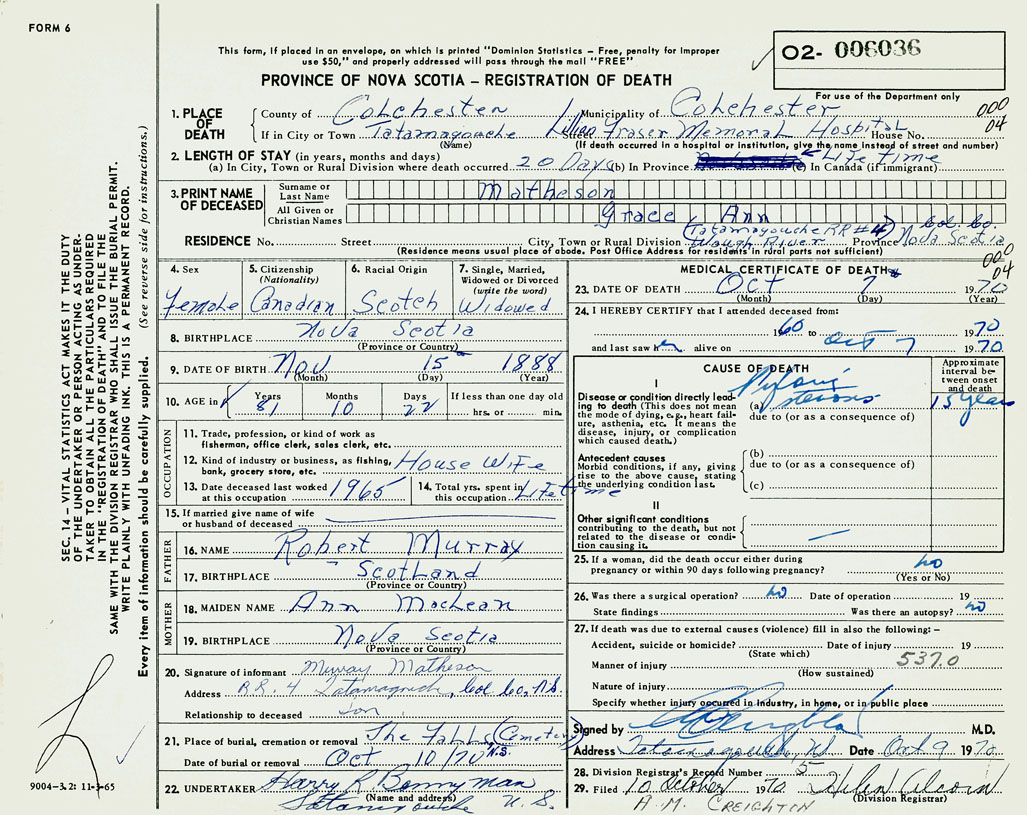 FORM 6
This form, if placed in an envelope, on which is printed "Dominion Statistics – Free, penalty for improper
use $50," and properly addressed will pass through the mail "FREE"
O2- 006036
PROVINCE OF NOVA SCOTIA – REGISTRATION OF DEATH
For use of the Department only
000
04
1. PLACE OF DEATH
County of Colchester Municipality of Colchester
If in City or Town Tatamagouche Street Lillian Fraser Memorial Hospital House No.
(Name) (If death occurred in a hospital or institution, give the name instead of street and number)
2. LENGTH OF STAY (in years, months and days) Life time
(a) In City, Town or Rural Division where death occurred 20 Days (b) In Province (c) In Canada (if immigrant)
3. PRINT NAME OF DECEASED
Surname or Last Name Matheson
All Given or Christian Names Grace Ann
(Tatamagouche RR #4) Col. Co.
RESIDENCE No. Street City, Town or Rural Division Waugh River Province Nova Scotia
(Residence means usual place of abode. Post Office Address for residents in rural parts not sufficient)
000
04
4. Sex Female
5. Citizenship (Nationality) Canadian
6. Racial Origin Scotch
7. Single, Married, Widowed or Divorced (write the word) Widowed
8. BIRTHPLACE Nova Scotia
(Province or Country)
9. DATE OF BIRTH Nov 15 1888
(Month) (Day) (Year)
10. AGE in Years Months Days If less than one day old
81 10 22 hrs. or min.
OCCUPATION
11. Trade, profession, or kind of work as
fisherman, office clerk, sales clerk, etc.
12. Kind of industry or business, as fishing,
bank, grocery store, etc. House Wife
13. Date deceased last worked
at this occupation 1965
14. Total yrs. spent in
this occupation Lifetime
15. If married give name of wife
or husband of deceased
FATHER
16. NAME Robert Murray
17. BIRTHPLACE Scotland
(Province or Country)
MOTHER
18. MAIDEN NAME Ann MacLean
19. BIRTHPLACE Nova Scotia
(Province or Country)
20. Signature of informant Murray Matheson
Address R.R. 4 Tatamagouche, Col. Co., N.S.
Relationship to deceased Son
21. Place of burial, cremation or removal The Falls (Cemetery)
N.S.
Date of burial or removal Oct 10/70
22. UNDERTAKER Harry R Bonnyman
(Name and address)
Tatamagouche N.S.
MEDICAL CERTIFICATE OF DEATH
23. DATE OF DEATH Oct 7 1970
(Month) (Day) (Year)
24. I HEREBY CERTIFY that I attended deceased from:
1960 to 1970
and last saw her alive on Oct 7 1970
CAUSE OF DEATH
Approximate interval between onset and death
I
Disease or condition directly leading to death (This does not
the mode of dying, e.g., heart failure, asthenia, etc. It means the
disease, injury, or complication
which caused death.)
(a) Pyloric stenosis 15 years
due to (or as a consequence of)
Antecedent causes
Morbid conditions, if any, giving
rise to the above cause, stating
the underlying condition last.
(b)
due to (or as a consequence of)
(c)
II
Other significant conditions
contributing to the death, but not
related to the disease or condition causing it.
25. If a woman, did the death occur either during
pregnancy or within 90 days following pregnancy? no
(Yes or No)
26. Was there a surgical operation? no Date of operation 19
State findings Was there an autopsy? no
27. If death was due to external causes (violence) fill in also the following:–
Accident, suicide or homicide? Date of injury 19
(State which)
537.0
Manner of injury
(How sustained)
Nature of injury
Specify whether injury occurred in industry, in home, or in public place
Signed by M.D.
Address Tatamagouche, NS Date Oct 9 1970
28. Division Registrar's Record Number 5
29. Filed 10 October 1970 Helen Alcorn
(Division Registrar)
A. M. CREIGHTON
SEC. 14 – VITAL STATISTICS ACT MAKES IT THE DUTY
OF THE UNDERTAKER OR PERSON ACTING AS UNDERTAKER
TO OBTAIN ALL THE PARTICULARS REQUIRED
IN THE "REGISTRATION OF DEATH" AND TO FILE THE
SAME WITH THE DIVISION REGISTRAR WHO SHALL ISSUE THE BURIAL PERMIT.
WRITE PLAINLY WITH UNFADING INK. THIS IS A PERMANENT RECORD.
Every item of information should be carefully supplied. (See reverse side for instructions.)
9004-3.2: 11-1-65